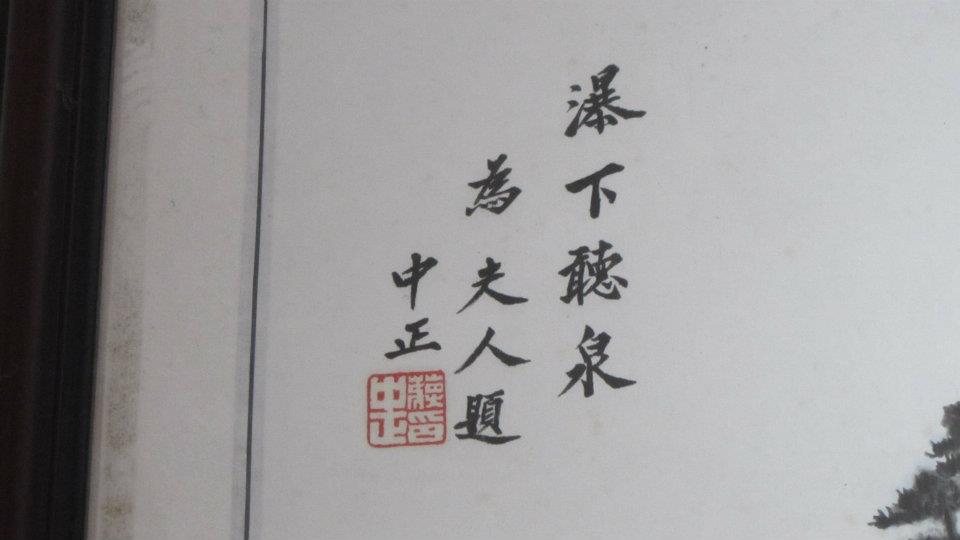 瀑下聽泉
為夫人題
中正
蔣印中正